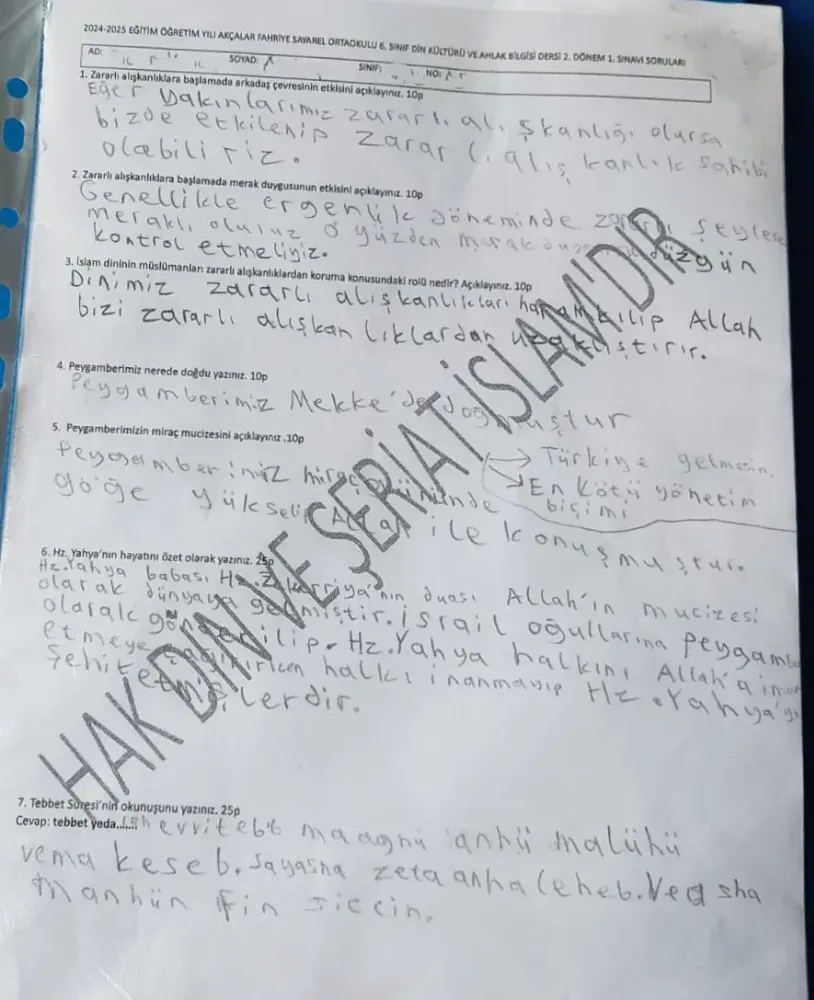 2024-2025 EĞİTİM ÖĞRETİM YILI AKÇALAR FAHRİYE SAYAREL ORTAOKULU 6. SINIF DİN KÜLTÜRÜ VE AHLAK BİLGİSİ DERSİ 2. DÖNEM 1. SINAVI SORULARI
AD: SOYAD: SINIF: NO:
1. Zararlı alışkanlıklara başlamada arkadaş çevresinin etkisini açıklayınız. 10p
Eğer Yakınlarımız zararlı alışkanlığı olursa
bizde etkilenip zararlı alışkanlık sahibi
olabiliriz.
2. Zararlı alışkanlıklara başlamada merak duygusunun etkisini açıklayınız. 10p
Genellikle ergenlik döneminde zararlı şeylere
meraklı oluruz o yüzden merak düzgün
kontrol etmeliyiz.
3. İslam dininin müslümanları zararlı alışkanlıklardan koruma konusundaki rolü nedir? Açıklayınız. 10p
Dinimiz zararlı alışkanlıkları haram kılıp Allah
bizi zararlı alışkanlıklardan uzaklıştırır.
4. Peygamberimiz nerede doğdu yazınız. 10p
Peygamberimiz Mekke'de doğmuştur
5. Peygamberimizin miraç mucizesini açıklayınız .10p
Peygamberimiz miraç gününde
göğe yükselip Allah ile konuşmuştur.
→ Türkiye gelmesin.
→ En kötü yönetim
biçimi
6. Hz. Yahya'nın hayatını özet olarak yazınız. 25p
Hz. Yahya babası Hz. Zekeriya'nın duası Allah'ın mucizesi
olarak dünyaya gelmiştir. İsrail oğullarına peygamber
olarak gönderilip. Hz. Yahya halkını Allah'a iman
etmeye çağırırken halkı inanmayıp Hz. Yahya'yı
Şehit etmişlerdir.
7. Tebbet Sûresi'nin okunuşunu yazınız. 25p
Cevap: tebbet yeda....... maagnü anhü malühü
vema keseb. Sayasna zeta anha leheb. Ved sha
manhün fin siccin.
HAK DİN VE ŞERİAT İSLAM'DIR